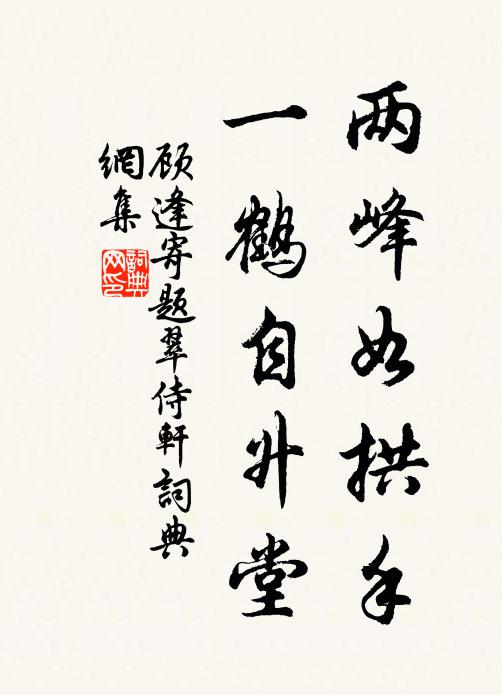 两峰如拱手
一鹤自升堂
顾逢寄题翠侍軒詞典
網集
詞典
网印